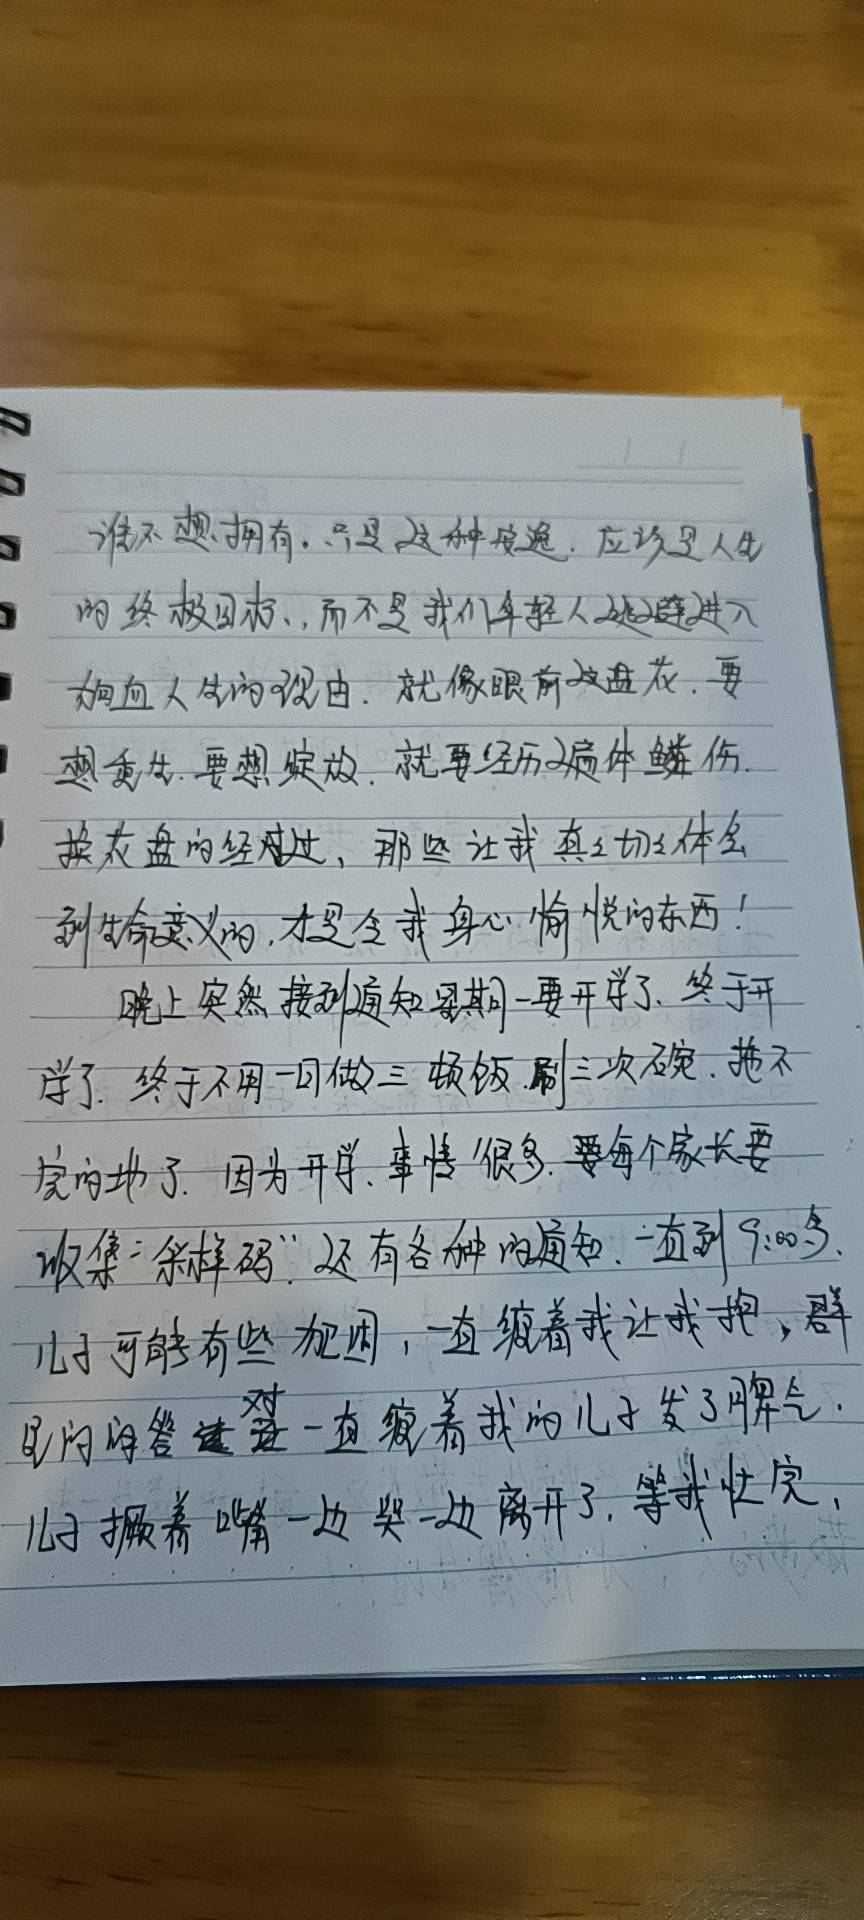 谁不想拥有。只是这种安逸.应该是人生
的终极目标,,而不是我们年轻人逃避进入
热血人生的理由.就像眼前这盘花.要
想重生.要想绽放.就要经历遍体鳞伤.
换花盘的经过,那些让我真真切切体会
到生命意义的,才是令我身心愉悦的东西!
晚上突然接到通知星期一要开学了.终于开
学了.终于不用一日做三顿饭.刷三次碗.拖不
完的地了.因为开学.事情很多.要每个家长要
收集“采样码”.还有各种的通知.一直到9:00多.
儿子可能有些犯困,一直缠着我让我抱,群
里的 对一直缠着我的儿子发了脾气.
儿子撅着嘴一边哭一边离开了.等我忙完,